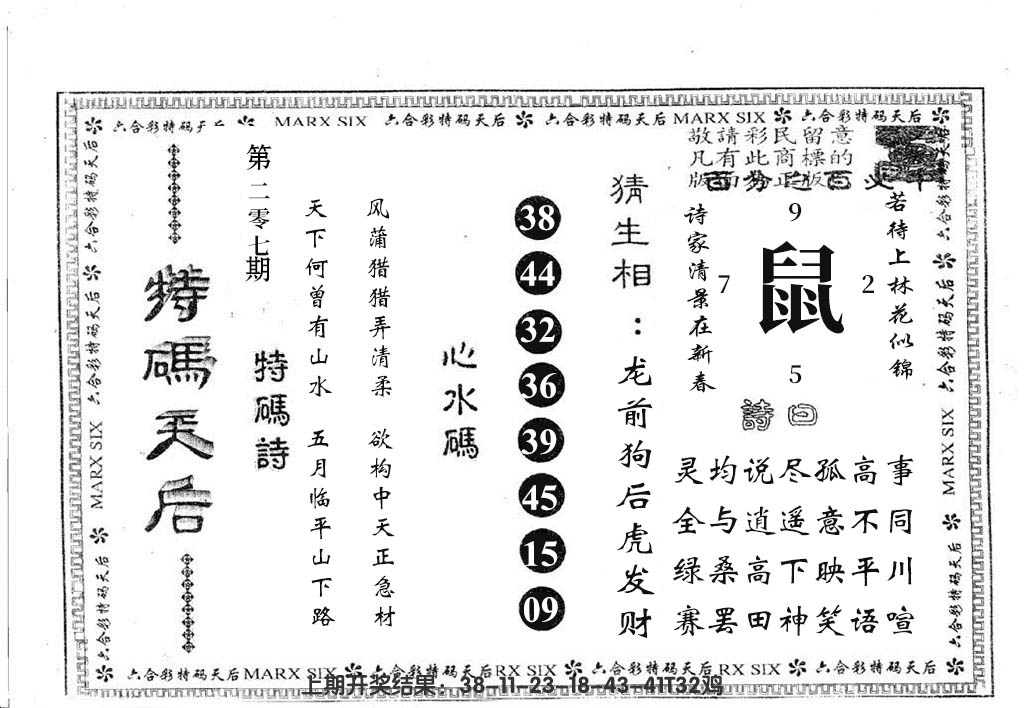 六合彩特码天后 MARX SIX 六合彩特码天后 六合彩特码天后 MARX SIX 六合彩特码天后
敬請彩民留意
凡有此商標的
版面为正版
若待上林花似锦
诗家清景在新春
9
7 鼠 2
5
詩曰
灵均说尽孤高事
全与逍遥意不同
绿桑高下映平川
赛罢田神笑语喧
猜生相：龙前狗后虎发财
38
44
32
36
39
45
15
09
心水碼
风蒲猎猎弄清柔 欲构中天正急材
天下何曾有山水 五月临平山下路
特碼詩
第二零七期
特碼天后
六合彩特码天后 六合彩特码天后 MARX SIX 六合彩特码天后
六合彩特码天后 六合彩特码天后 MARX SIX 六合彩特码天后
六合彩特码天后 MARX SIX 六合彩特码天后 RX SIX 六合彩特码天后 RX SIX 六合彩特码天后
上期开奖结果：38-11-23-18-43-41T32鸡